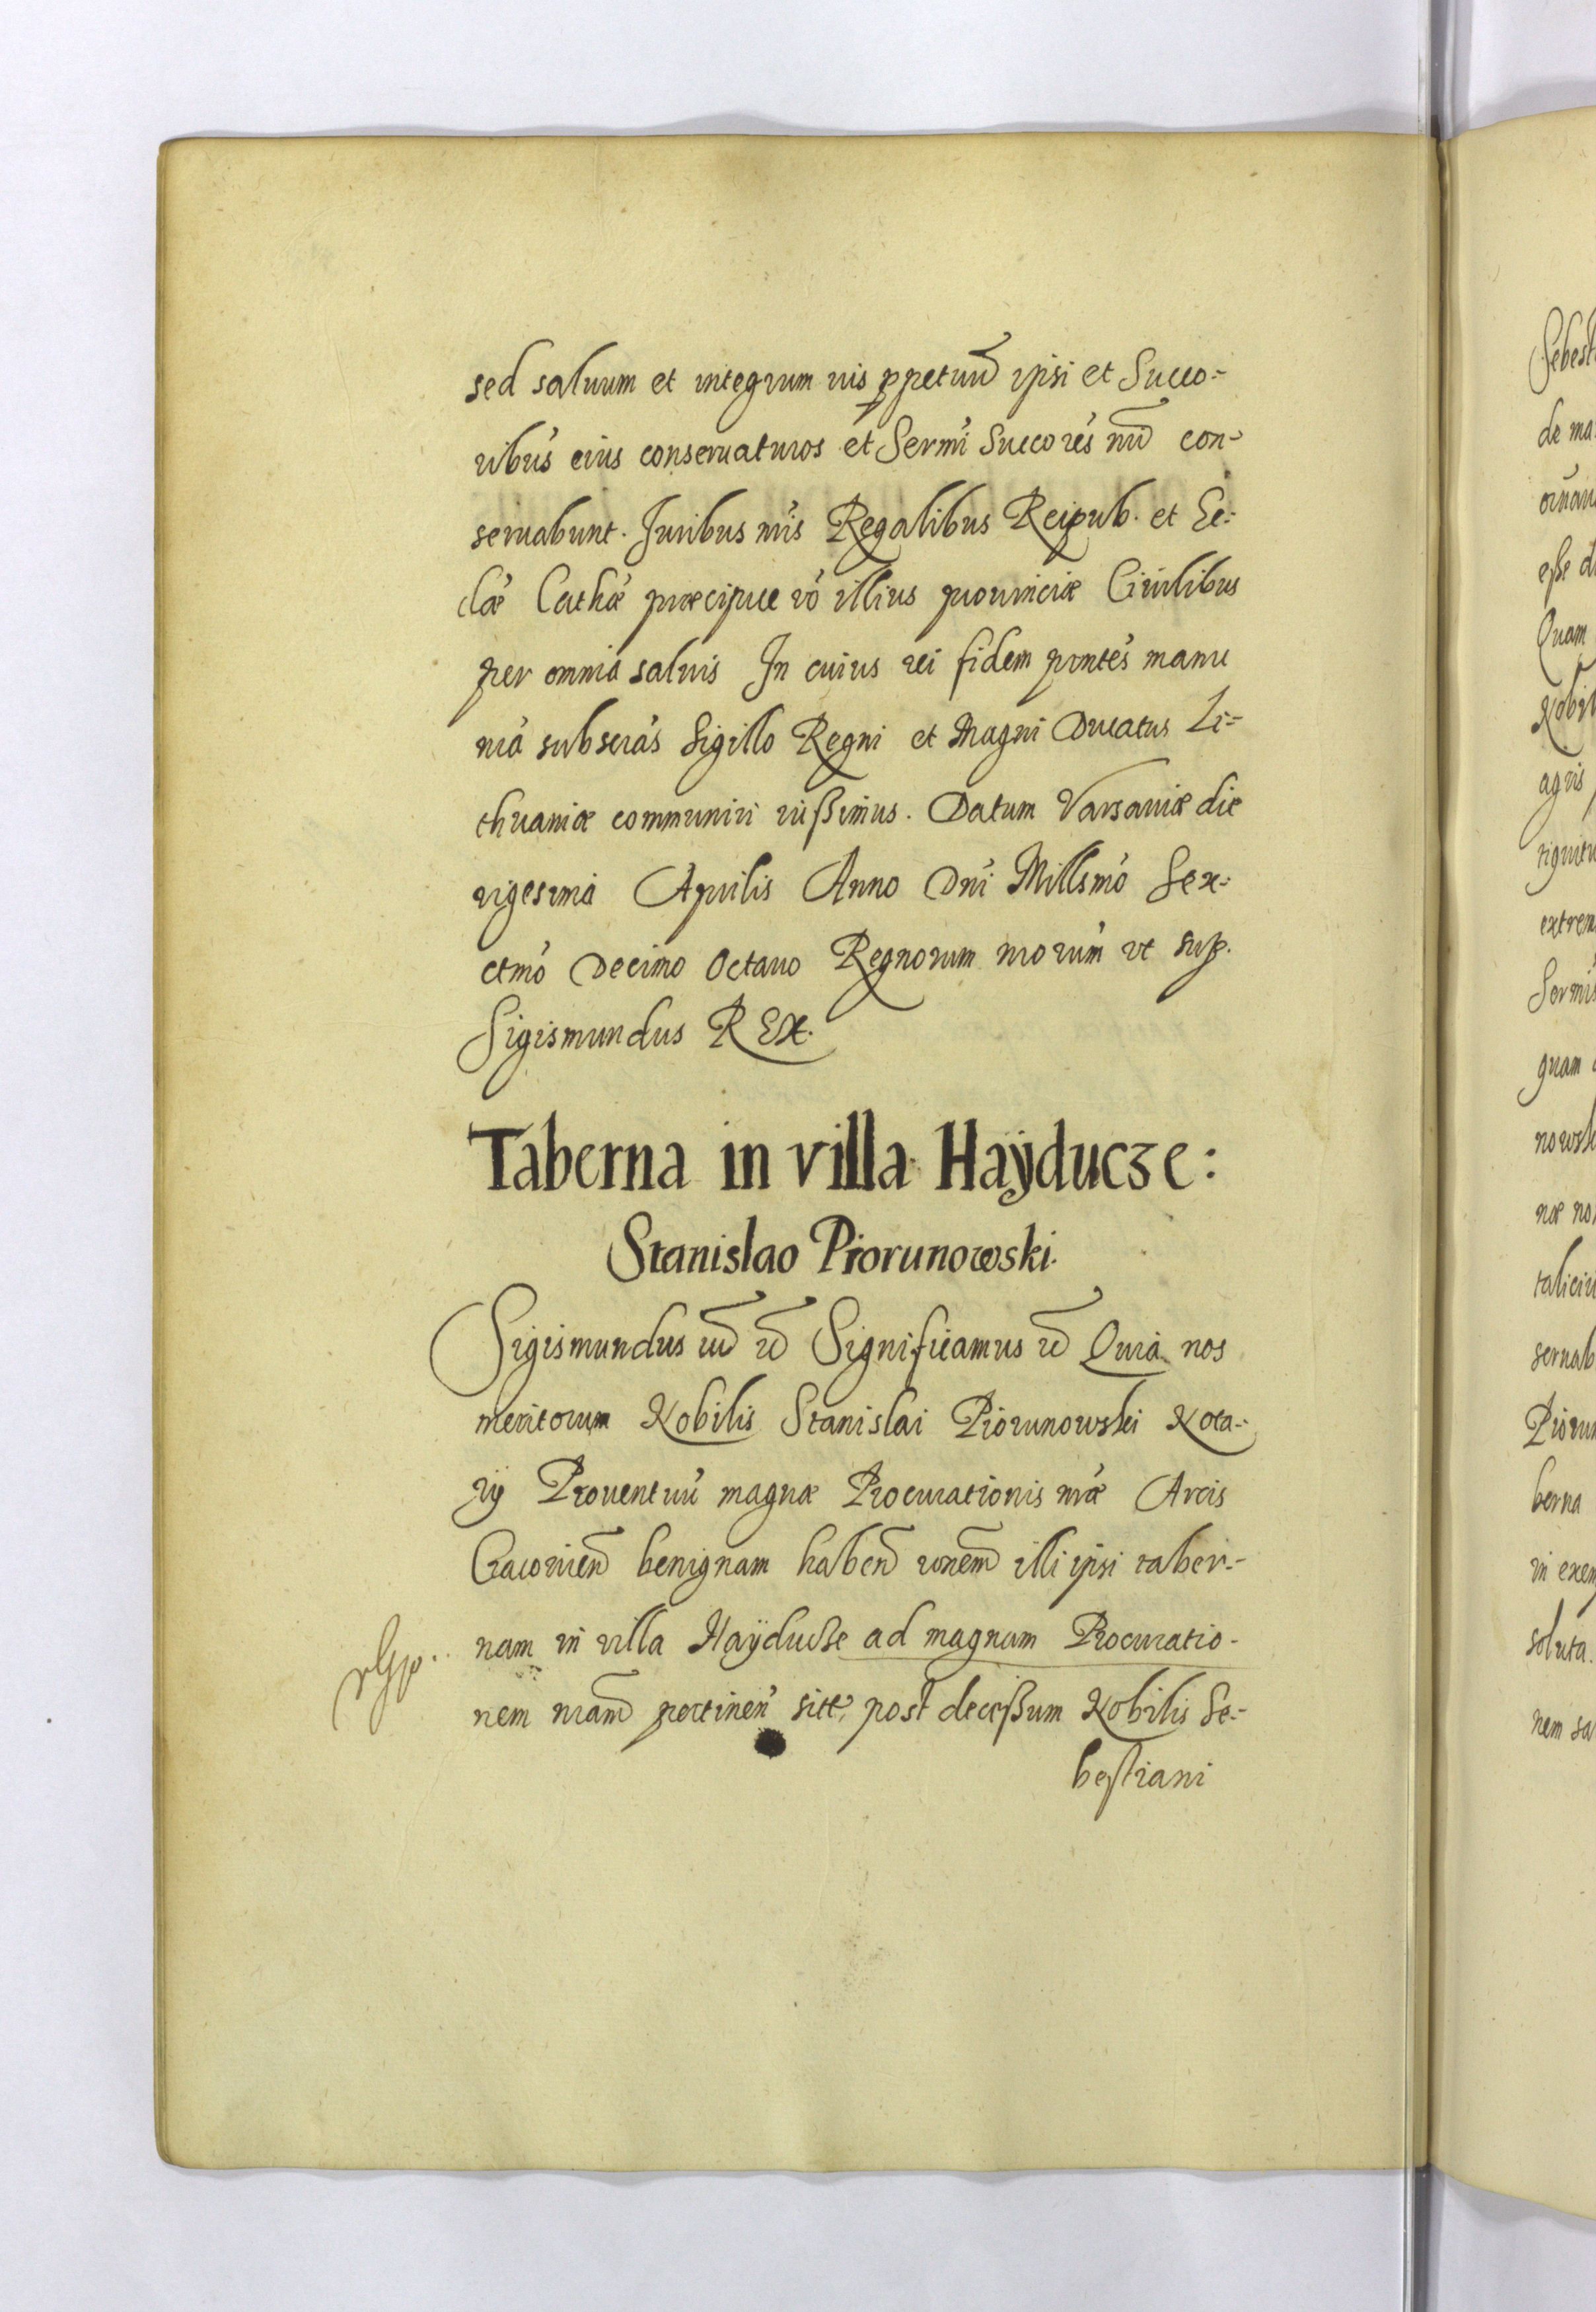 sed saluum et integrum ius ppetuũ ipsi et Succo-
ribus eius conseruaturos et Sermi Succores nrĩ con-
seruabunt. Juribus nris Regalibus Reipub. et Ec-
clæ Cathæ præcipue vo illius prouinciæ Ciuilibus
per omnia saluis In cuius rei fidem pntes manu
nra subscras Sigillo Regni et Magni Ducatus Li-
thuaniæ communiri iußimus. Datum Varsauiæ die
vigesima Aprilis Anno Dni Millsmo Sex-
ctmo Decimo Octauo Regnorum nrorum vt sup.
Sigismundus REX.
Taberna in villa Haÿducze:
Stanislao Piorunowski.
Sigismundus Significamus Quia nos
meritorum Nobilis Stanislai Piorunowski Nota-
rij Prouentuu magnæ Procurationis nræ Arcis
Cracouien benignam haben ronem illi ipsi taber-
nam in villa Haÿducze ad magnam Procuratio-
nem nram pertinen sitt post deceßum Nobilis Se-
bestiani
Sebest
de ma
eße d
Quam
Nobil
agris
extrem
quam
nowsk
næ no
seruab
Piorun
berna
in exem
soluta.
nem sa